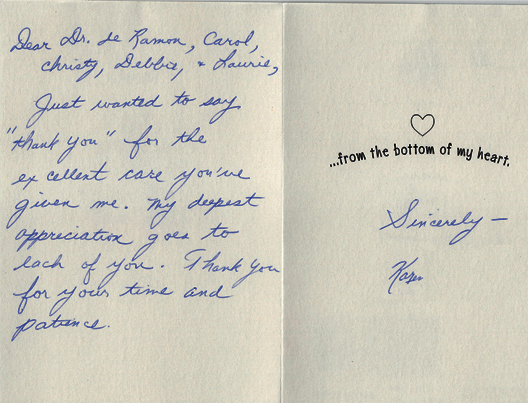 Dear Dr. de Ramon, Carol,
Christy, Debbie, & Laurie,
Just wanted to say
"thank you" for the
excellent care you've
given me. My deepest
appreciation goes to
each of you. Thank you
for your time and
patience.
...from the bottom of my heart.
Sincerely —
Karen